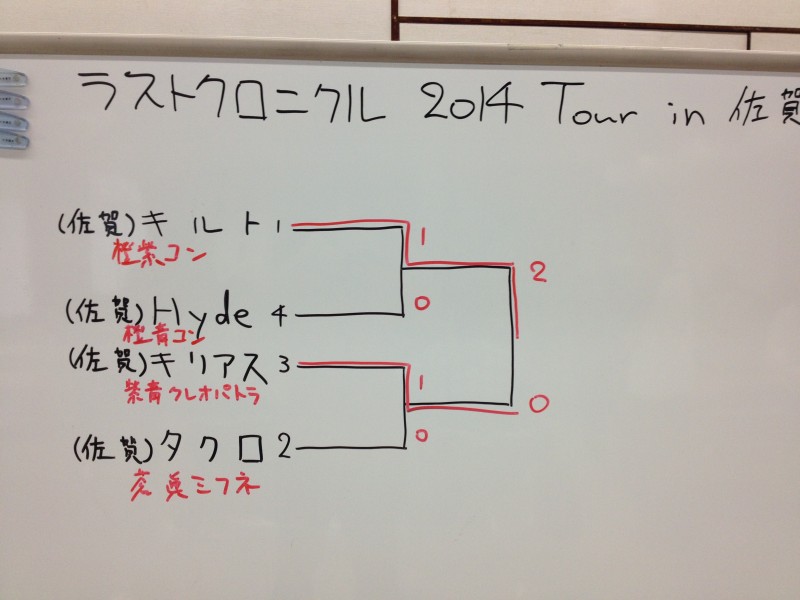 ラストクロニクル 2014 Tour in 佐賀
(佐賀)キルト1
橙紫コン
1
2
(佐賀)Hyde 4
0
橙青コン
(佐賀)キリアス3
1
紫青クレオパトラ
0
(佐賀)タクロ2
0
ミフネ